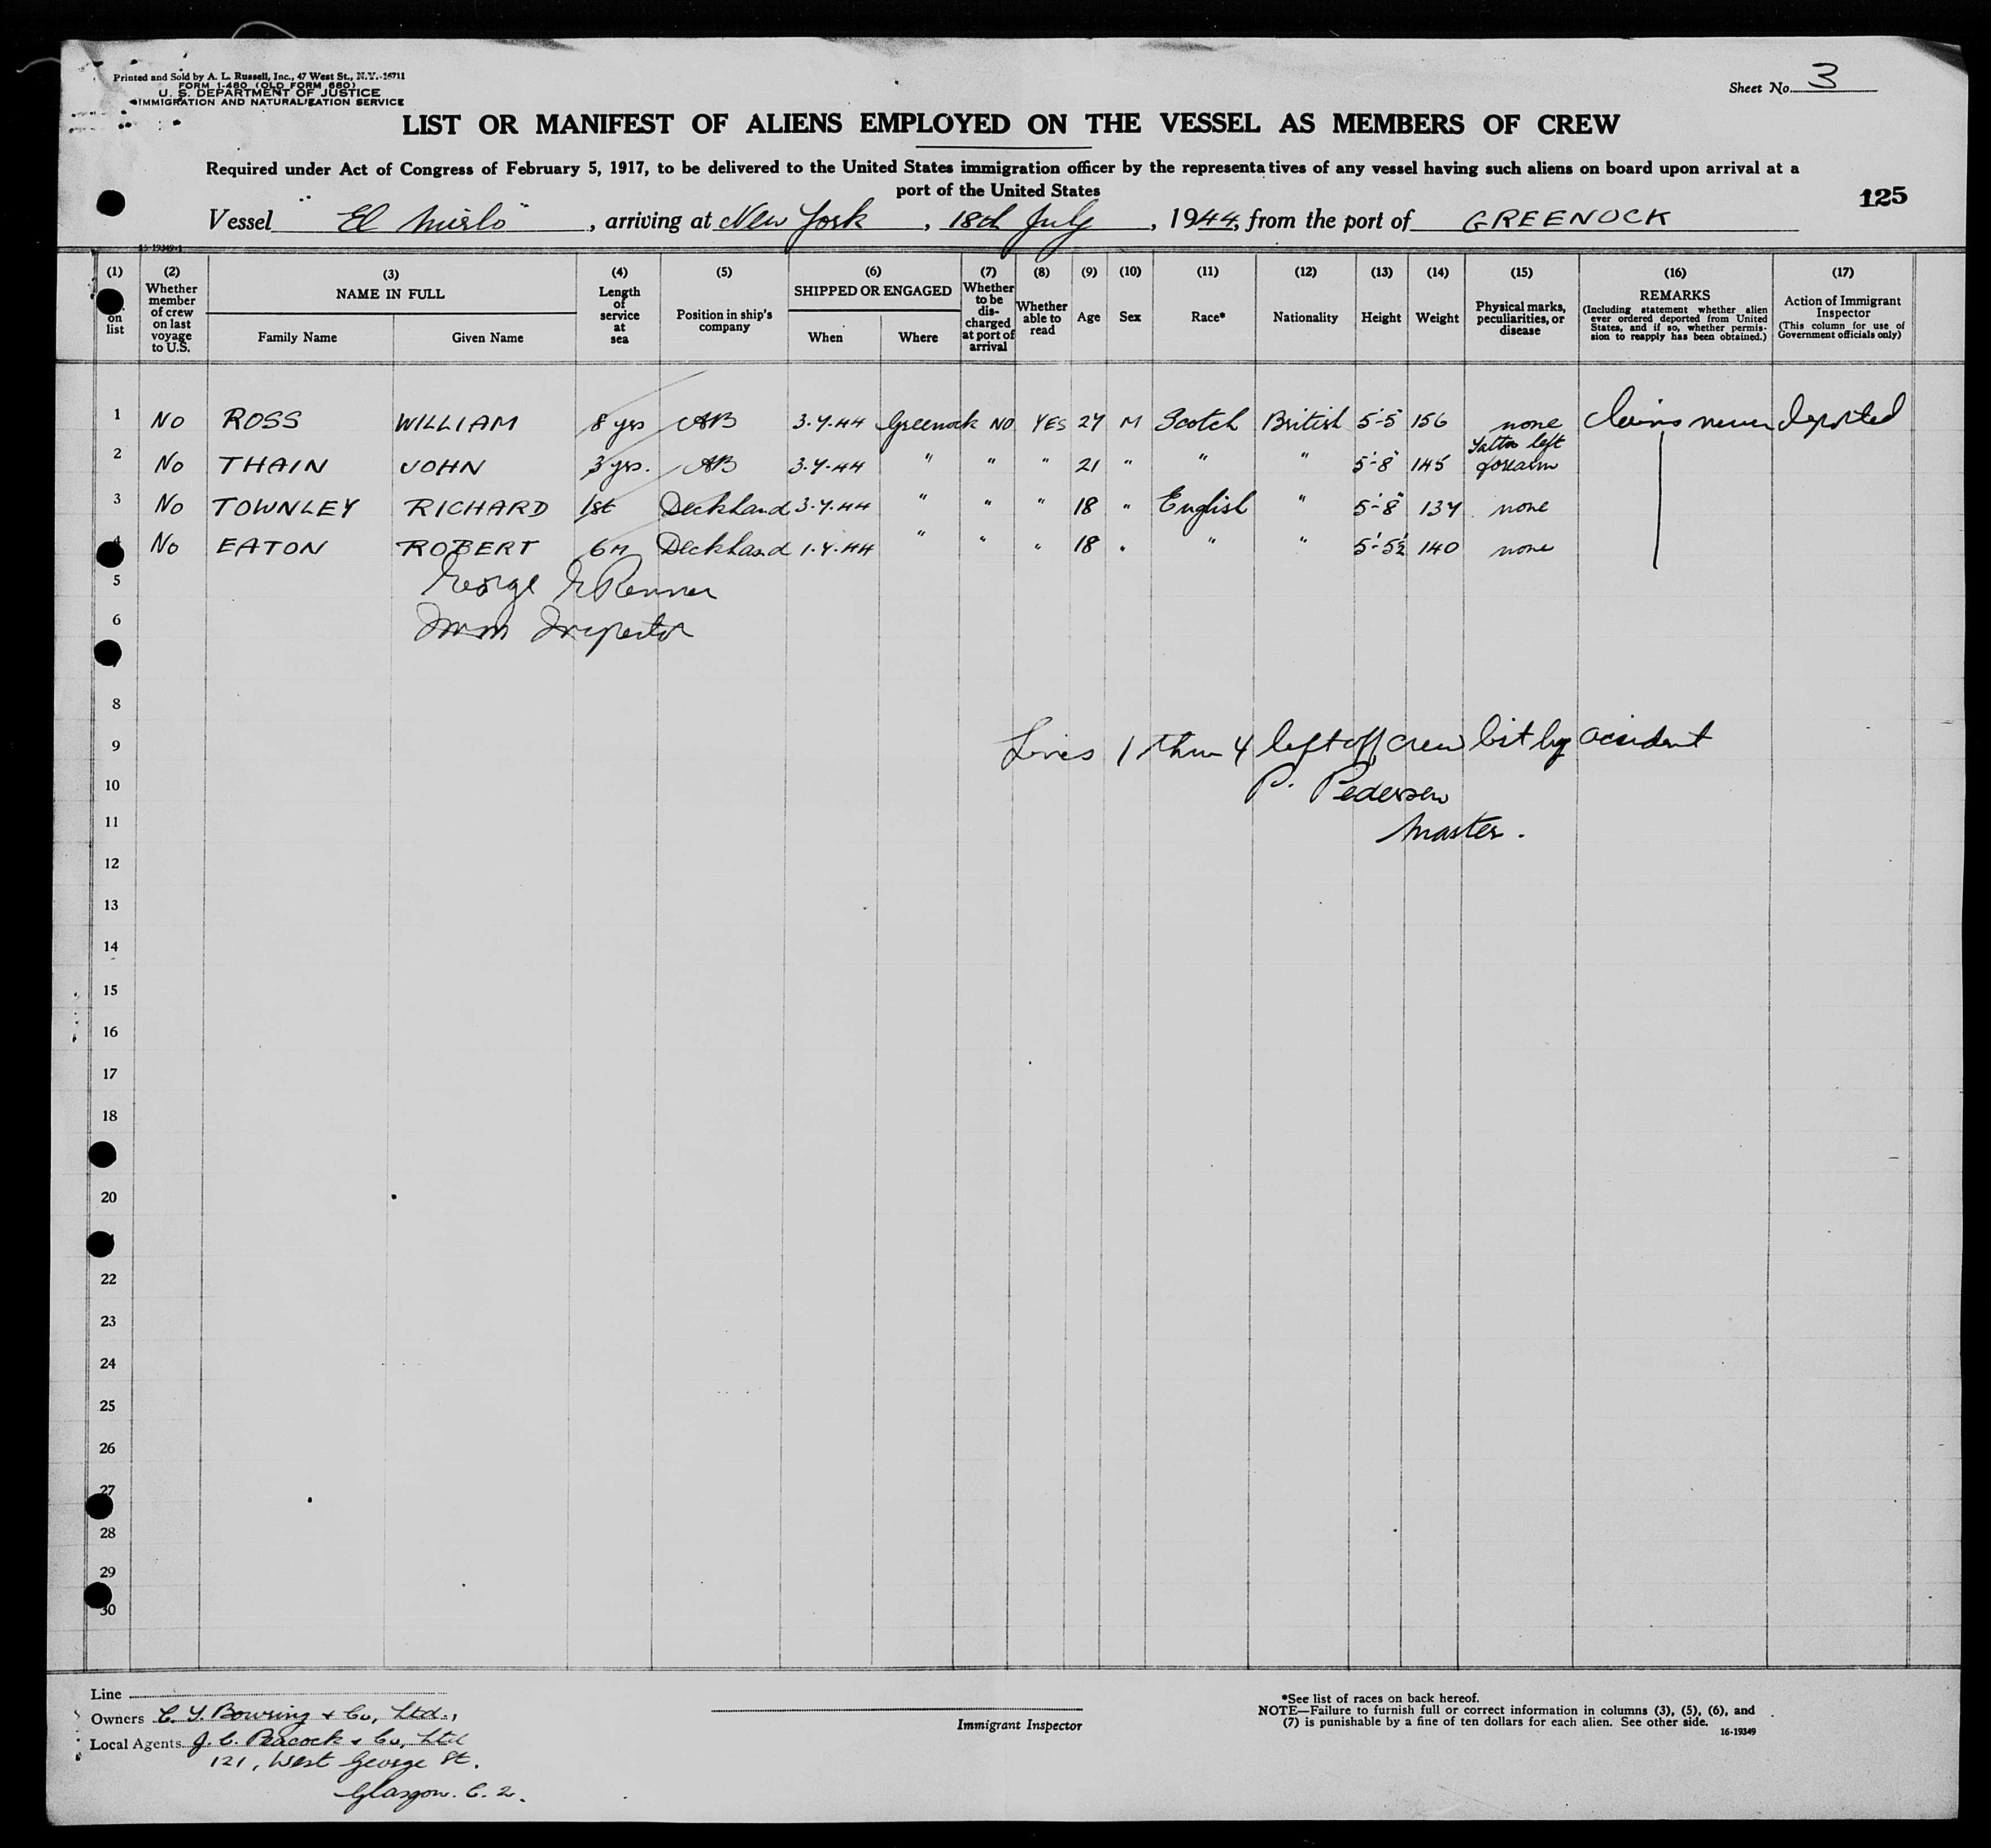 Printed and Sold by A. L. Russell, Inc., 47 West St., N.Y.-16711
FORM 1-480 (OLD FORM 680)
U. S. DEPARTMENT OF JUSTICE
IMMIGRATION AND NATURALIZATION SERVICE
Sheet No. 3
LIST OR MANIFEST OF ALIENS EMPLOYED ON THE VESSEL AS MEMBERS OF CREW
Required under Act of Congress of February 5, 1917, to be delivered to the United States immigration officer by the representatives of any vessel having such aliens on board upon arrival at a
port of the United States
125
Vessel "El Mirlo", arriving at New York, 18th July, 1944, from the port of GREENOCK
15-19349-1
(1) (2) (3) (4) (5) (6) (7) (8) (9) (10) (11) (12) (13) (14) (15) (16) (17)
on list
Whether member of crew on last voyage to U.S.
NAME IN FULL
Family Name Given Name
Length of service at sea
Position in ship's company
SHIPPED OR ENGAGED
When Where
Whether to be discharged at port of arrival
Whether able to read
Age
Sex
Race*
Nationality
Height
Weight
Physical marks, peculiarities, or disease
REMARKS
(Including statement whether alien ever ordered deported from United States, and if so, whether permission to reapply has been obtained.)
Action of Immigrant Inspector
(This column for use of Government officials only)
1 No ROSS WILLIAM 8 yrs AB 3.7.44 Greenock NO YES 27 M Scotch British 5'-5" 156 none Claims never deported
2 No THAIN JOHN 3 yrs. AB 3.7.44 " " " 21 " " " 5'-8" 145 Tattoo left forearm
3 No TOWNLEY RICHARD 1st Deckhand 3.7.44 " " " 18 " English " 5'-8" 137 none
4 No EATON ROBERT 6M Deckhand 1.7.44 " " " 18 " " " 5'-5½ 140 none
5 George Renner
6 Imm Inspector
8
9 Lines 1 thru 4 left off crew list by accident
10 P. Pedersen
11 Master.
12
13
14
15
16
17
18
20
22
23
24
25
26
27
28
29
30
Line
Owners C. T. Bowring & Co, Ltd.,
Local Agents J. C. Peacock & Co, Ltd
121, West George St.
Glasgow. C. 2.
Immigrant Inspector
*See list of races on back hereof.
NOTE—Failure to furnish full or correct information in columns (3), (5), (6), and
(7) is punishable by a fine of ten dollars for each alien. See other side.
16-19349